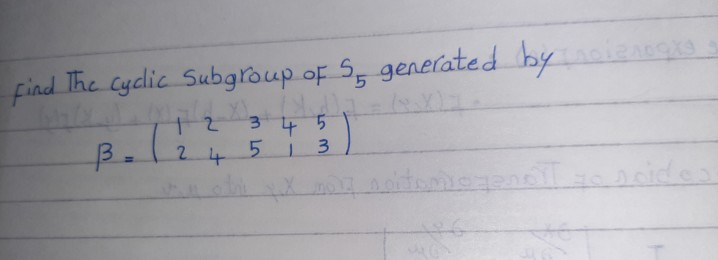 Find The cyclic Subgroup of S₅ generated by
β = ( 1 2 3 4 5
2 4 5 1 3 )